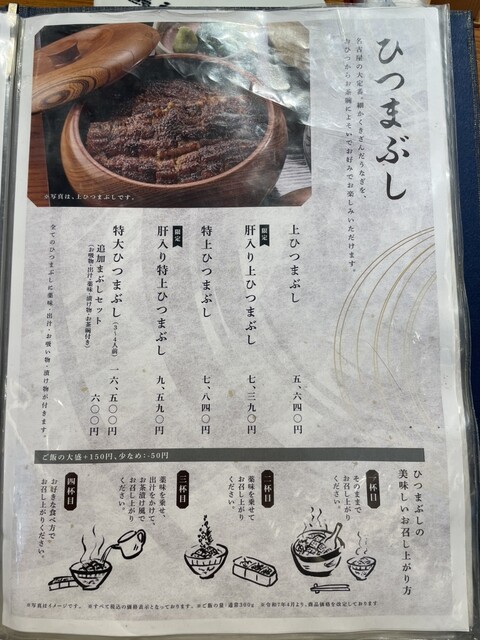 ひつまぶし
名古屋の大定番。細かくきざんだうなぎを、
おひつからお茶碗によそいでお好みでお楽しみいただけます。
※写真は、上ひつまぶしです。
上ひつまぶし 五、六四〇円
限定
肝入り上ひつまぶし 七、三九〇円
特上ひつまぶし 七、八四〇円
限定
肝入り特上ひつまぶし 九、五九〇円
特大ひつまぶし(3〜4人前) 一六、五〇〇円
追加まぶしセット 六〇〇円
(お吸物・出汁・薬味・漬け物・お茶碗付き)
全てのひつまぶしに薬味・出汁・お吸い物・漬け物が付きます。
ご飯の大盛+150円、少なめ:-50円
ひつまぶしの
美味しいお召し上がり方
一杯目
そのままで
お召し上がり
ください。
二杯目
薬味を乗せて
お召し上がり
ください。
三杯目
薬味を乗せ、
出汁をかけて、
お茶漬け風で
お召し上がり
ください。
四杯目
お好きな食べ方で
お召し上がりください。
※写真はイメージです。 ※すべて税込の価格表示となっております。 ※ご飯の量:通常300g ※令和7年4月より、商品価格を改定しております。